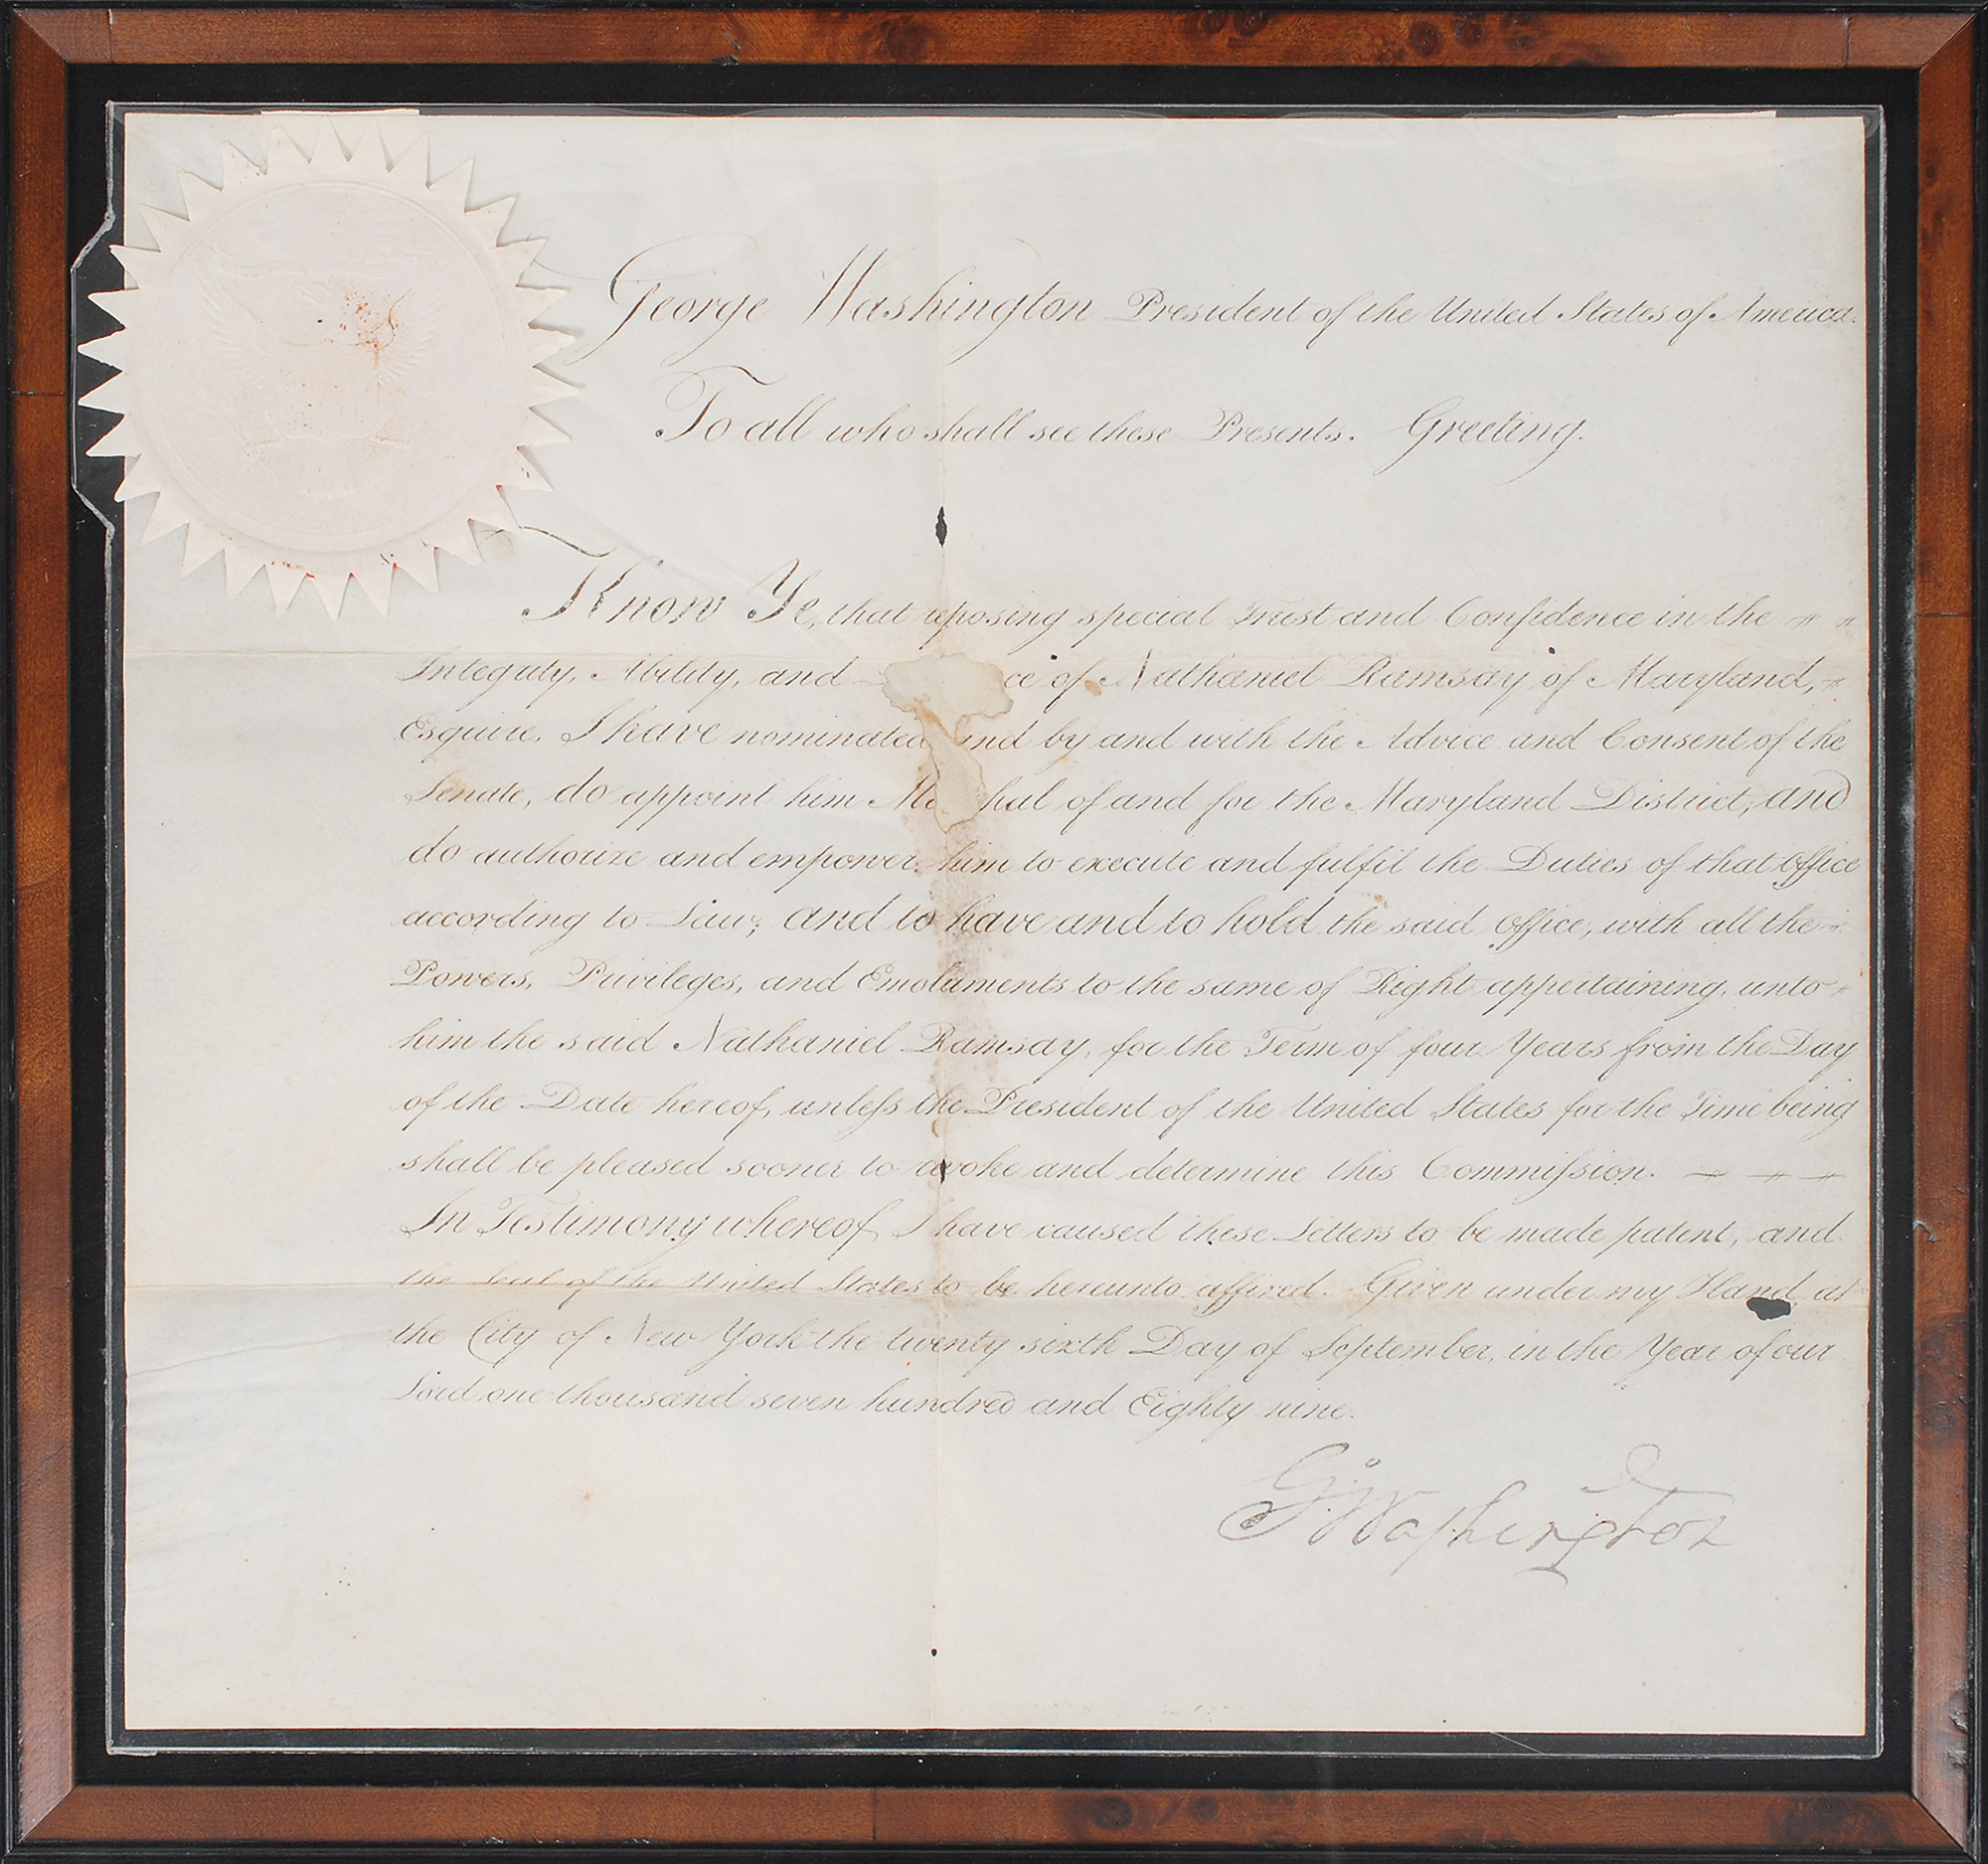 George Washington President of the United States of America.
To all who shall see these Presents. Greeting.
Know Ye, that reposing special Trust and Confidence in the
Integrity, Ability, and ce of Nathaniel Ramsay of Maryland,
Esquire, I have nominated and by and with the Advice and Consent of the
Senate, do appoint him Ma shal of and for the Maryland District; and
do authorize and empower him to execute and fulfil the Duties of that Office
according to Law; and to have and to hold the said Office, with all the
Powers, Privileges, and Emoluments to the same of Right appertaining, unto
him the said Nathaniel Ramsay, for the Term of four Years from the Day
of the Date hereof, unleſs the President of the United States for the Time being
shall be pleased sooner to revoke and determine this Commiſsion.
In Testimony whereof I have caused these Letters to be made patent, and
the Seal of the United States to be hereunto affixed. Given under my Hand at
the City of New York the twenty sixth Day of September, in the Year of our
Lord one thousand seven hundred and Eighty nine.
Go: Waſhington